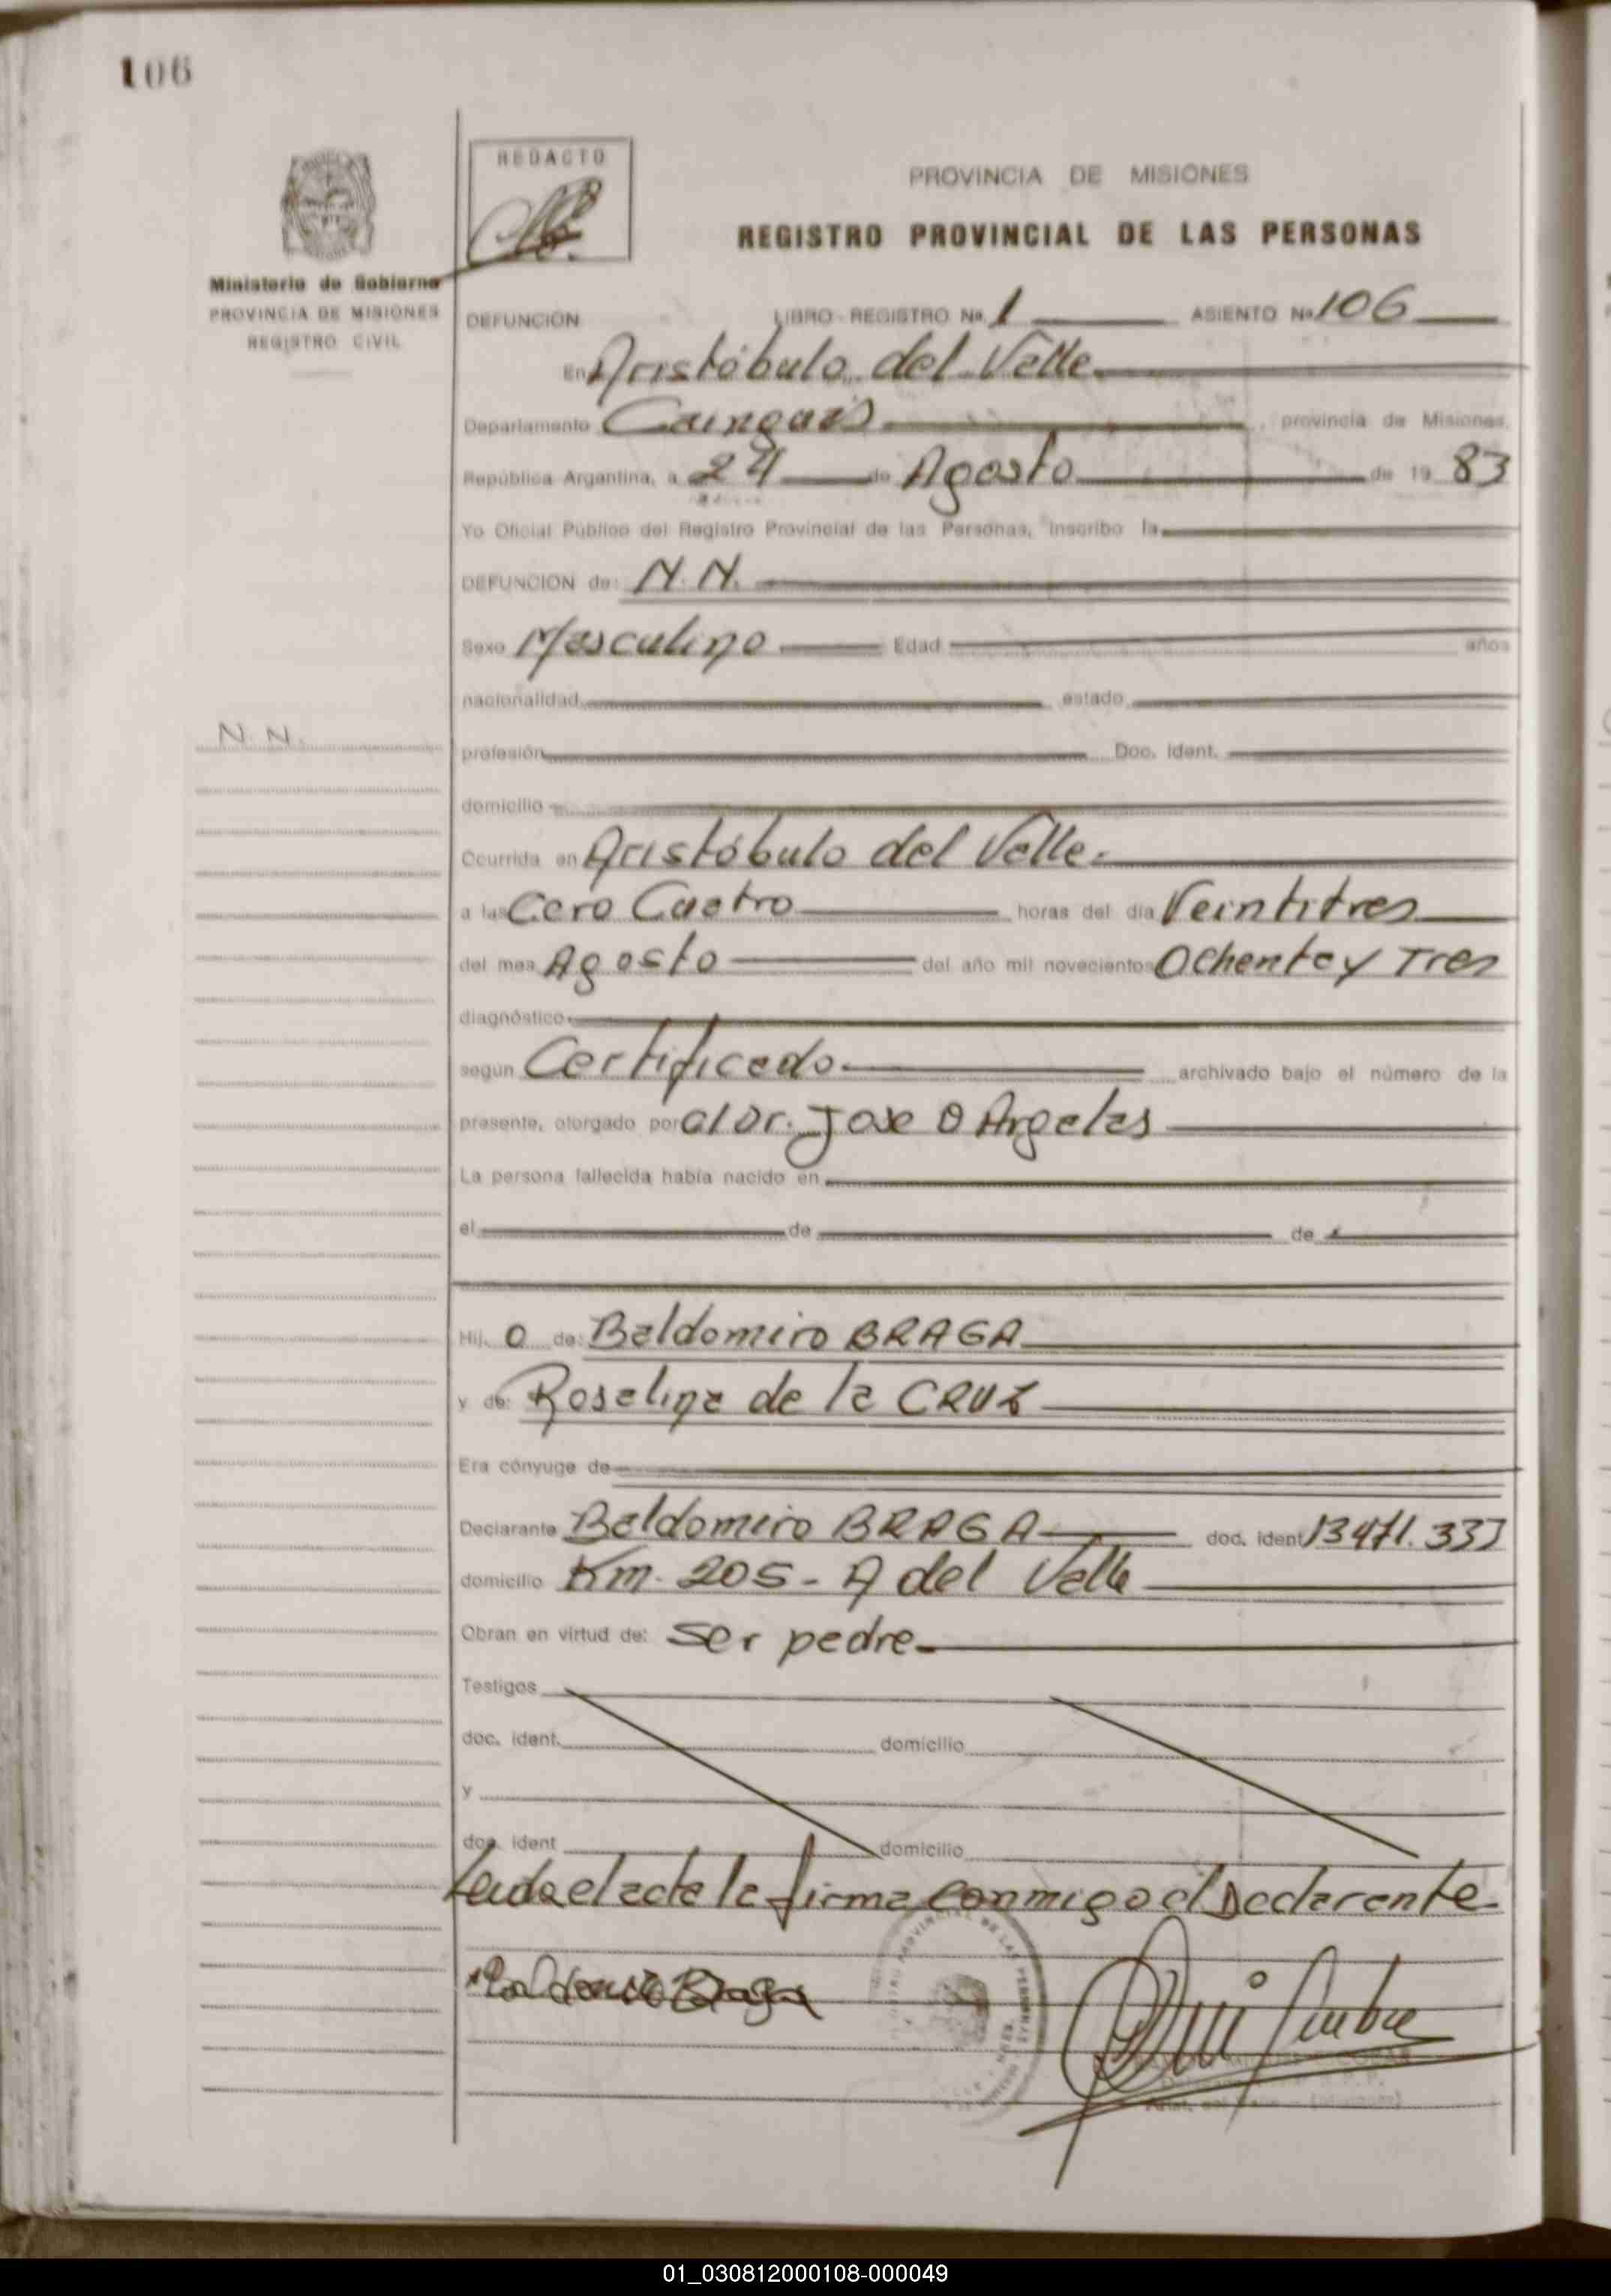 106
REDACTO
PROVINCIA DE MISIONES
REGISTRO PROVINCIAL DE LAS PERSONAS
Ministerio de Gobierno
PROVINCIA DE MISIONES
REGISTRO CIVIL
DEFUNCION LIBRO - REGISTRO Nº 1 ASIENTO Nº 106
En Aristóbulo del Valle
Departamento Cainguas, provincia de Misiones,
República Argentina, a 24 de Agosto de 19 83
Yo Oficial Público del Registro Provincial de las Personas, inscribo la
DEFUNCION de: N. N.
Sexo Masculino Edad años
nacionalidad estado
N. N.
profesión Doc. Ident.
domicilio
Ocurrida en Aristóbulo del Valle.
a las Cero Cuatro horas del día Veintitres
del mes Agosto del año mil novecientos Ochenta y Tres
diagnóstico
según Certificado archivado bajo el número de la
presente, otorgado por al Dr. Jose O Argeles
La persona fallecida había nacido en
el de de
Hij o de: Baldomiro BRAGA
y de: Roselina de la CRUZ
Era cónyuge de
Declarante Baldomiro BRAGA doc. ident 13471.333
domicilio Km. 205 - A del Valle
Obran en virtud de: Ser padre
Testigos
doc. ident. domicilio
y
doc. ident domicilio
Leida el acta la firma conmigo el Declarante
Braga
01_030812000108-000049